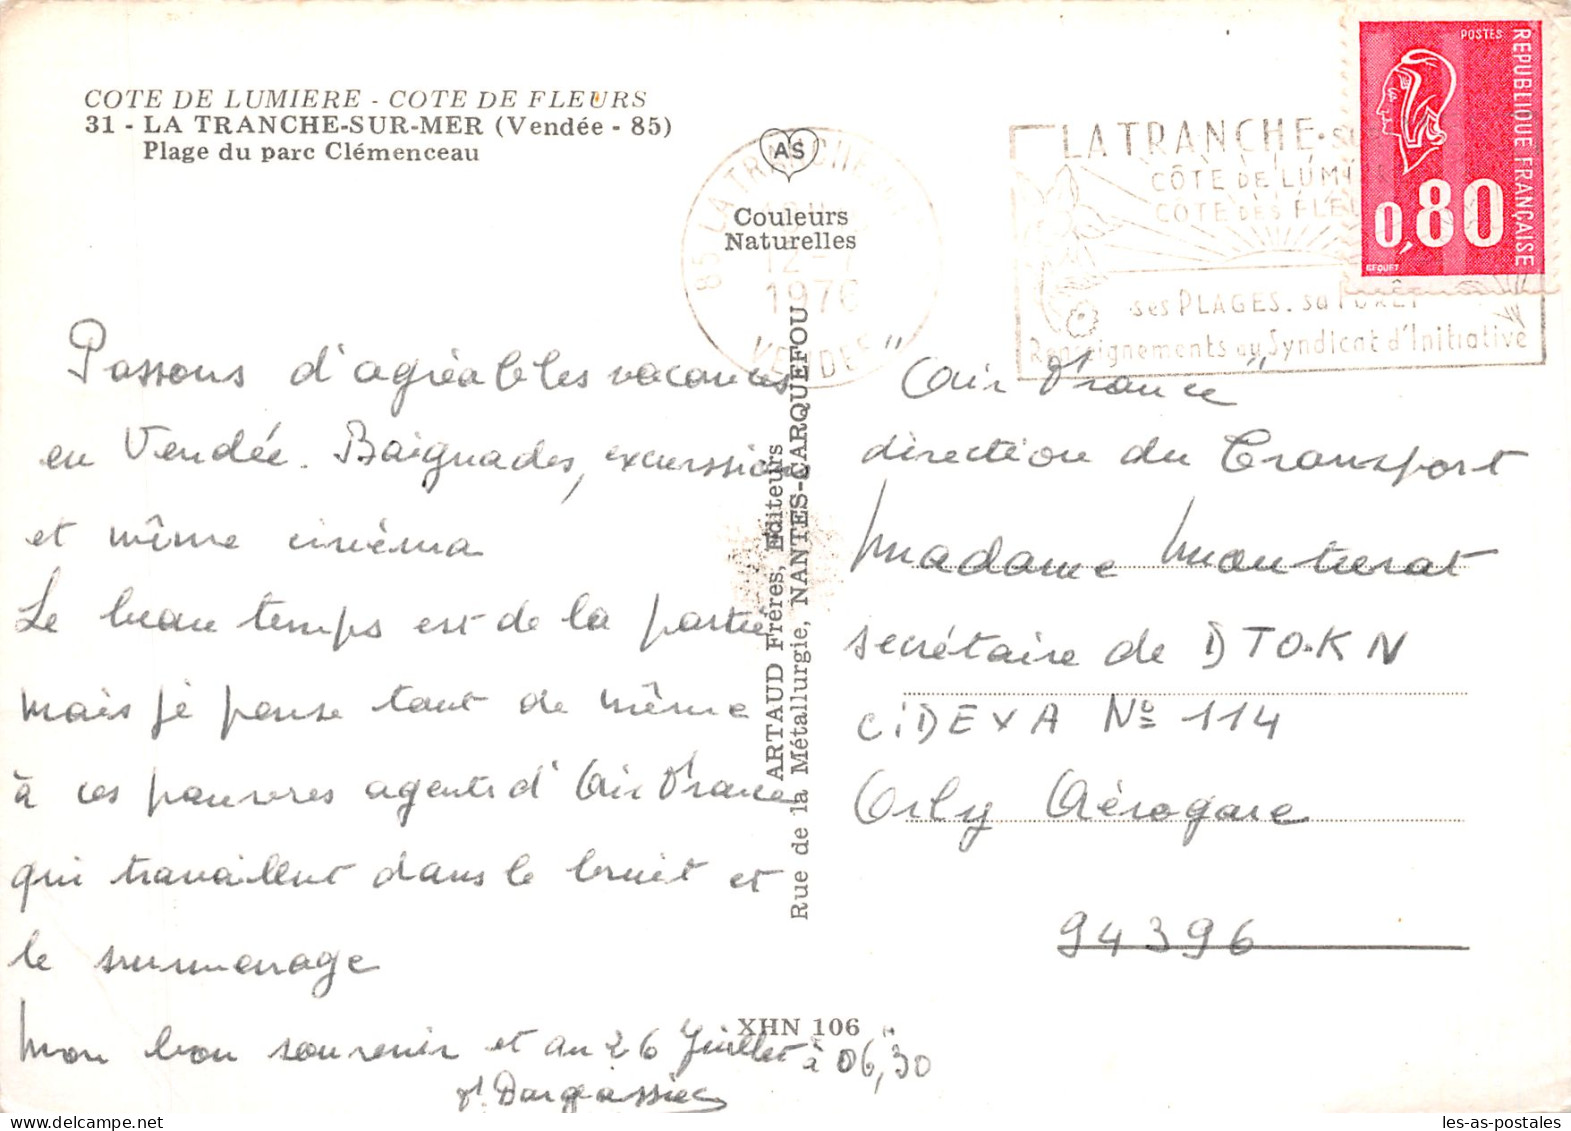 COTE DE LUMIERE - COTE DE FLEURS
31 - LA TRANCHE-SUR-MER (Vendée - 85)
Plage du parc Clémenceau
AS
Couleurs
Naturelles
85 LA TRANCHE
12-7
1976
VENDEE
LA TRANCHE-SUR
CÔTE DE LUMIÈRE
CÔTE DES FLEU
ses PLAGES. sa FORÊT
Renseignements au Syndicat d'Initiative
POSTES
REPUBLIQUE FRANÇAISE
0,80
BEQUET
Passons d'agréables vacances
en Vendée. Baignades, excurssions
et même cinéma
Le beau temps est de la partie
mais je pense tout de même
à ces pauvres agents d'Air France
qui travaillent dans le bruit et
le surmenage
Mon bon souvenir et au 26 Juillet à 06,30
ARTAUD Frères, Editeurs
Rue de la Métallurgie, NANTES-CARQUEFOU
XHN 106
"Air France"
direction du Transport
Madame Montserat
secrétaire de DTO.KN
CiDEXA Nº 114
Orly Aérogare
94396
les-as-postales